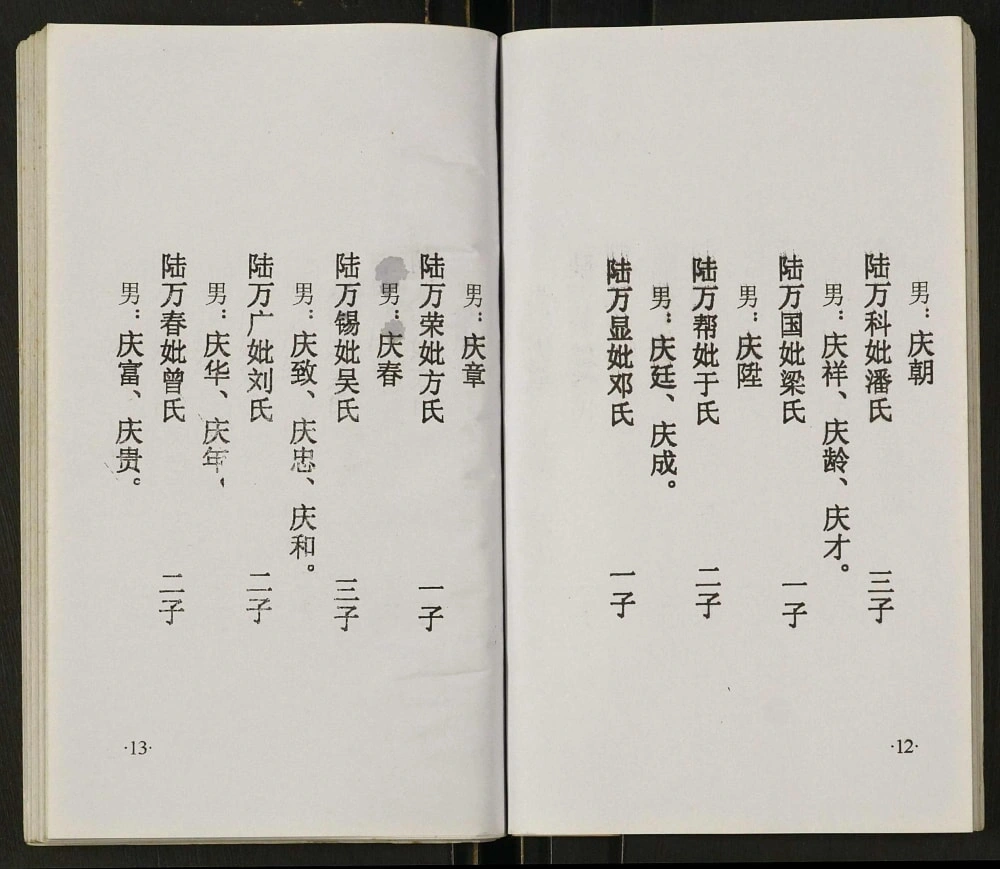 男：庆朝
陆万科妣潘氏 三子
男：庆祥、庆龄、庆才。
陆万国妣梁氏 一子
男：庆陞
陆万帮妣于氏 二子
男：庆廷、庆成。
陆万显妣邓氏 一子
·12·
男：庆章
陆万荣妣方氏 一子
男：庆春
陆万锡妣吴氏 三子
男：庆致、庆忠、庆和。
陆万广妣刘氏 二子
男：庆华、庆年，
陆万春妣曾氏 二子
男：庆富、庆贵。
·13·